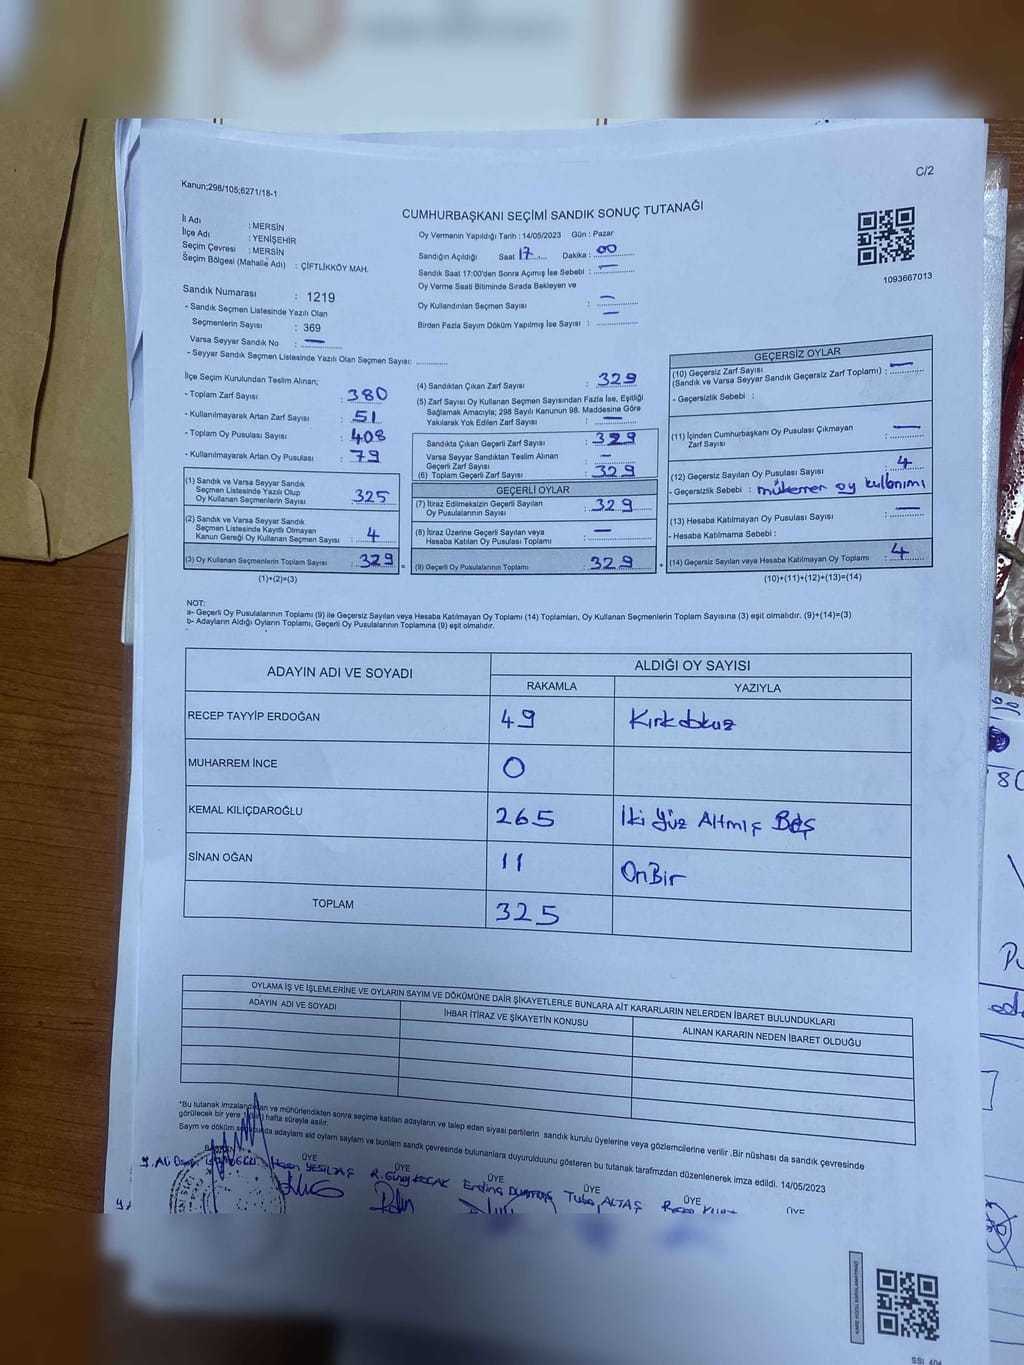 C/2
Kanun;298/105;6271/18-1
CUMHURBAŞKANI SEÇİMİ SANDIK SONUÇ TUTANAĞI
İl Adı : MERSİN
İlçe Adı : YENİŞEHİR
Seçim Çevresi : MERSİN
Seçim Bölgesi (Mahalle Adı) : ÇİFTLİKKÖY MAH.
Oy Vermenin Yapıldığı Tarih : 14/05/2023 Gün : Pazar
Sandığın Açıldığı Saat 17 Dakika : 00
Sandık Saat 17:00'den Sonra Açımış İse Sebebi : —
Oy Verme Saati Bitiminde Sırada Bekleyen ve
Oy Kullandırılan Seçmen Sayısı : —
Birden Fazla Sayım Döküm Yapılmış İse Sayısı : —
1093667013
Sandık Numarası : 1219
- Sandık Seçmen Listesinde Yazılı Olan
Seçmenlerin Sayısı : 369
Varsa Seyyar Sandık No : —
- Seyyar Sandık Seçmen Listesinde Yazılı Olan Seçmen Sayısı:
İlçe Seçim Kurulundan Teslim Alınan;
- Toplam Zarf Sayısı : 380
- Kullanılmayarak Artan Zarf Sayısı : 51
- Toplam Oy Pusulası Sayısı : 408
- Kullanılmayarak Artan Oy Pusulası : 79
(1) Sandık ve Varsa Seyyar Sandık
Seçmen Listesinde Yazılı Olup
Oy Kullanan Seçmenlerin Sayısı : 325
(2) Sandık ve Varsa Seyyar Sandık
Seçmen Listesinde Kayıtlı Olmayan
Kanun Gereği Oy Kullanan Seçmen Sayısı : 4
(3) Oy Kullanan Seçmenlerin Toplam Sayısı : 329 =
(1)+(2)=(3)
(4) Sandıktan Çıkan Zarf Sayısı : 329
(5) Zarf Sayısı Oy Kullanan Seçmen Sayısından Fazla İse, Eşitliği
Sağlamak Amacıyla; 298 Sayılı Kanunun 98. Maddesine Göre
Yakılarak Yok Edilen Zarf Sayısı : —
Sandıkta Çıkan Geçerli Zarf Sayısı : 329
Varsa Seyyar Sandıktan Teslim Alınan
Geçerli Zarf Sayısı : —
(6) Toplam Geçerli Zarf Sayısı : 329
GEÇERLİ OYLAR
(7) İtiraz Edilmeksizin Geçerli Sayılan
Oy Pusulalarının Sayısı : 329
(8) İtiraz Üzerine Geçerli Sayılan veya
Hesaba Katılan Oy Pusulası Toplamı : —
(9) Geçerli Oy Pusulalarının Toplamı : 329 +
GEÇERSİZ OYLAR
(10) Geçersiz Zarf Sayısı
(Sandık ve Varsa Seyyar Sandık Geçersiz Zarf Toplamı) : —
- Geçersizlik Sebebi :
(11) İçinden Cumhurbaşkanı Oy Pusulası Çıkmayan
Zarf Sayısı : —
(12) Geçersiz Sayılan Oy Pusulası Sayısı : 4
- Geçersizlik Sebebi : mükerrer oy kullanımı
(13) Hesaba Katılmayan Oy Pusulası Sayısı : —
- Hesaba Katılmama Sebebi :
(14) Geçersiz Sayılan veya Hesaba Katılmayan Oy Toplamı : 4
(10)+(11)+(12)+(13)=(14)
NOT:
a- Geçerli Oy Pusulalarının Toplamı (9) ile Geçersiz Sayılan veya Hesaba Katılmayan Oy Toplamı (14) Toplamları, Oy Kullanan Seçmenlerin Toplam Sayısına (3) eşit olmalıdır. (9)+(14)=(3)
b- Adayların Aldığı Oyların Toplamı, Geçerli Oy Pusulalarının Toplamına (9) eşit olmalıdır.
ADAYIN ADI VE SOYADI ALDIĞI OY SAYISI
RAKAMLA YAZIYLA
RECEP TAYYİP ERDOĞAN 49 Kırk dokuz
MUHARREM İNCE 0
KEMAL KILIÇDAROĞLU 265 İki Yüz Altmış Beş
SİNAN OĞAN 11 On Bir
TOPLAM 325
OYLAMA İŞ VE İŞLEMLERİNE VE OYLARIN SAYIM VE DÖKÜMÜNE DAİR ŞİKAYETLERLE BUNLARA AİT KARARLARIN NELERDEN İBARET BULUNDUKLARI
ADAYIN ADI VE SOYADI İHBAR İTİRAZ VE ŞİKAYETİN KONUSU ALINAN KARARIN NEDEN İBARET OLDUĞU
*Bu tutanak ve mühürlendikten sonra seçime katılan adayların ve talep eden siyasi partilerin sandık kurulu üyelerine veya gözlemcilerine verilir .Bir nüshası da sandık çevresinde
görülecek bir yere hafta süreyle asılır.
Sayım ve döküm adayların ald oyların sayların ve bunların sandk çevresinde bulunanlara duyurulduunu gösteren bu tutanak tarafmzdan düzenlenerek imza edildi. 14/05/2023
ÜYE ÜYE ÜYE ÜYE ÜYE ÜYE
YEŞİLTAŞ KOÇAK Erdinç Tuba ALTAŞ